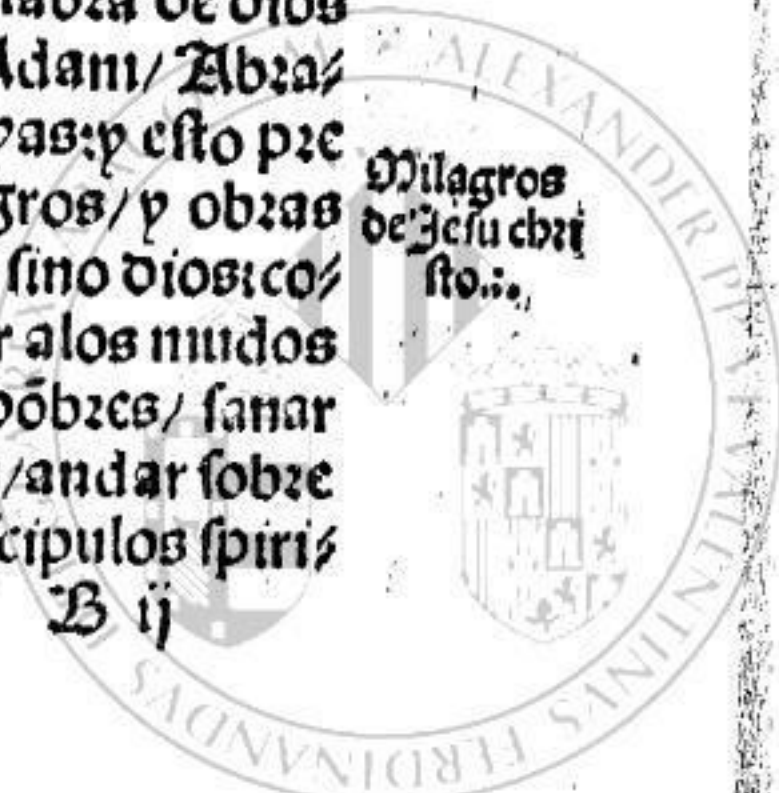 labra de dios
Adam/ Abra⸗
vas:y eſto pre
gros/y obras
ſino dios:co⸗
r alos mudos
hōbres/ ſanar
/andar ſobre
cipulos ſpiri⸗
B ij
Milagros
de Jeſu chri
ſto.:.
ALEXANDER PP VI VALENTINVS FERDINANDVS